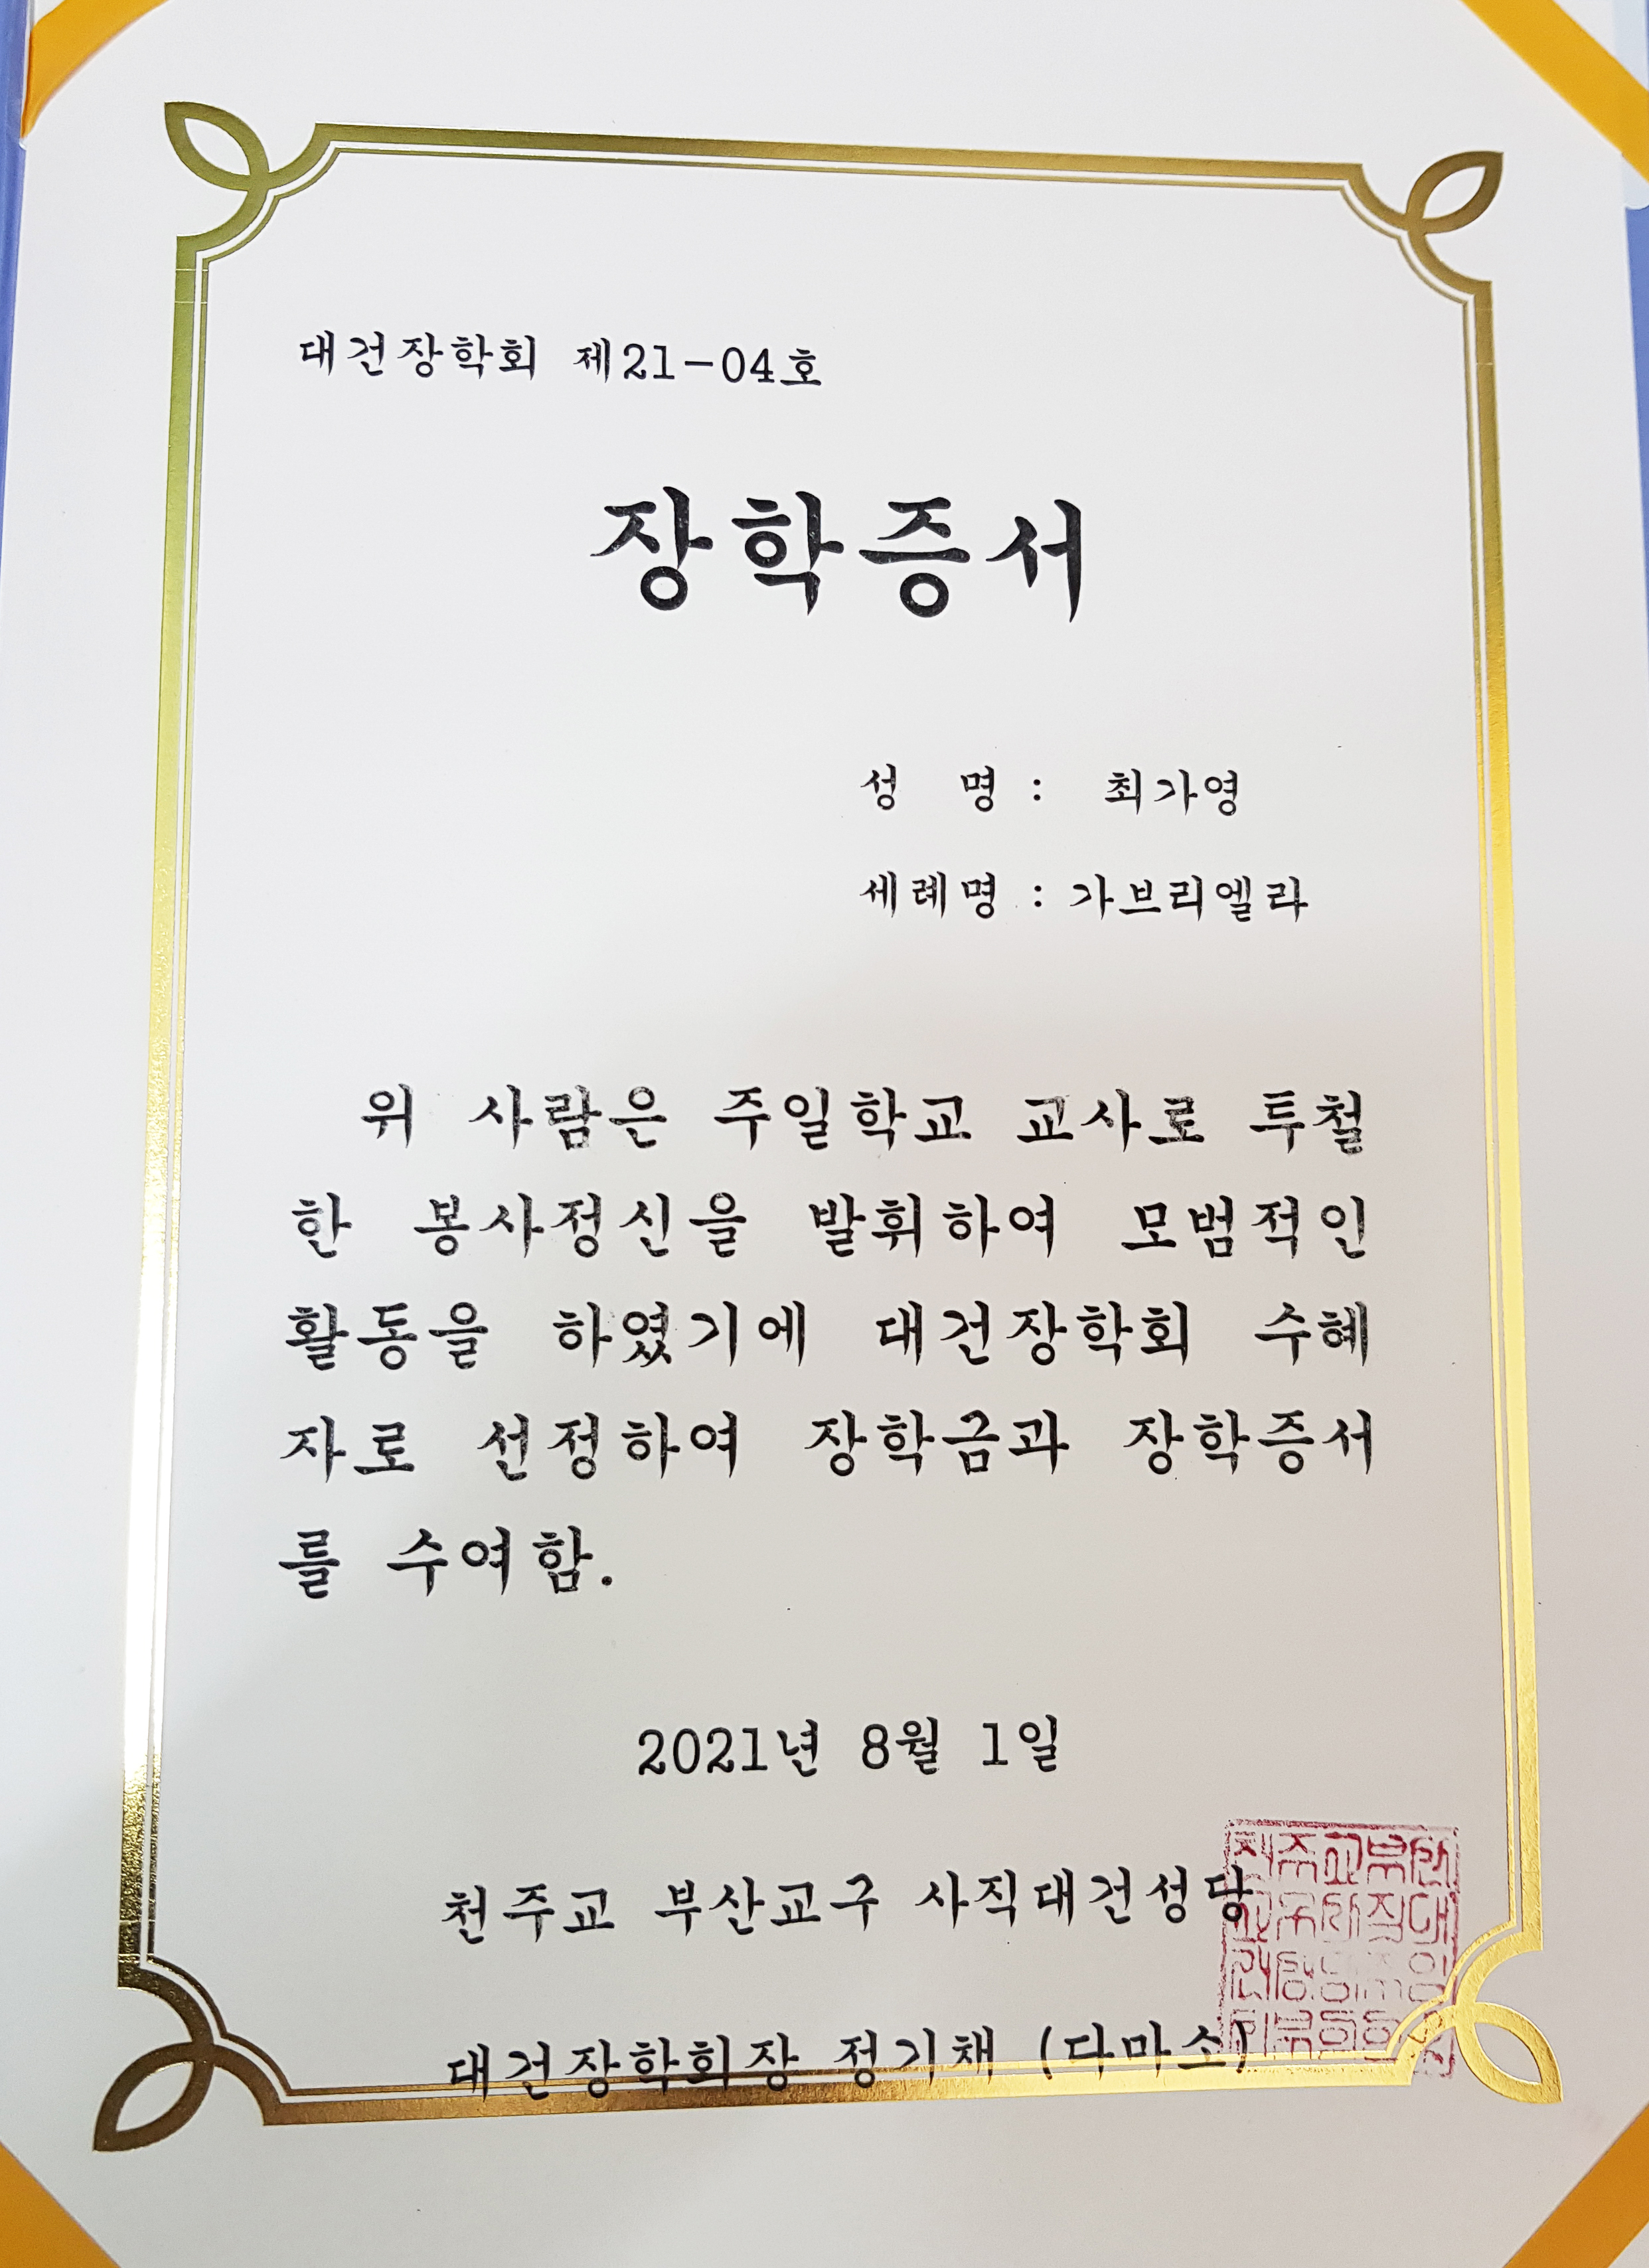 대건장학회 제21-04호
장학증서
성 명 : 최가영
세례명 : 가브리엘라
위 사람은 주일학교 교사로 투철
한 봉사정신을 발휘하여 모범적인
활동을 하였기에 대건장학회 수혜
자로 선정하여 장학금과 장학증서
를 수여함.
2021년 8월 1일
천주교 부산교구 사직대건성당
대건장학회장 정기채 (다마소)
천주교부산
교구사직대